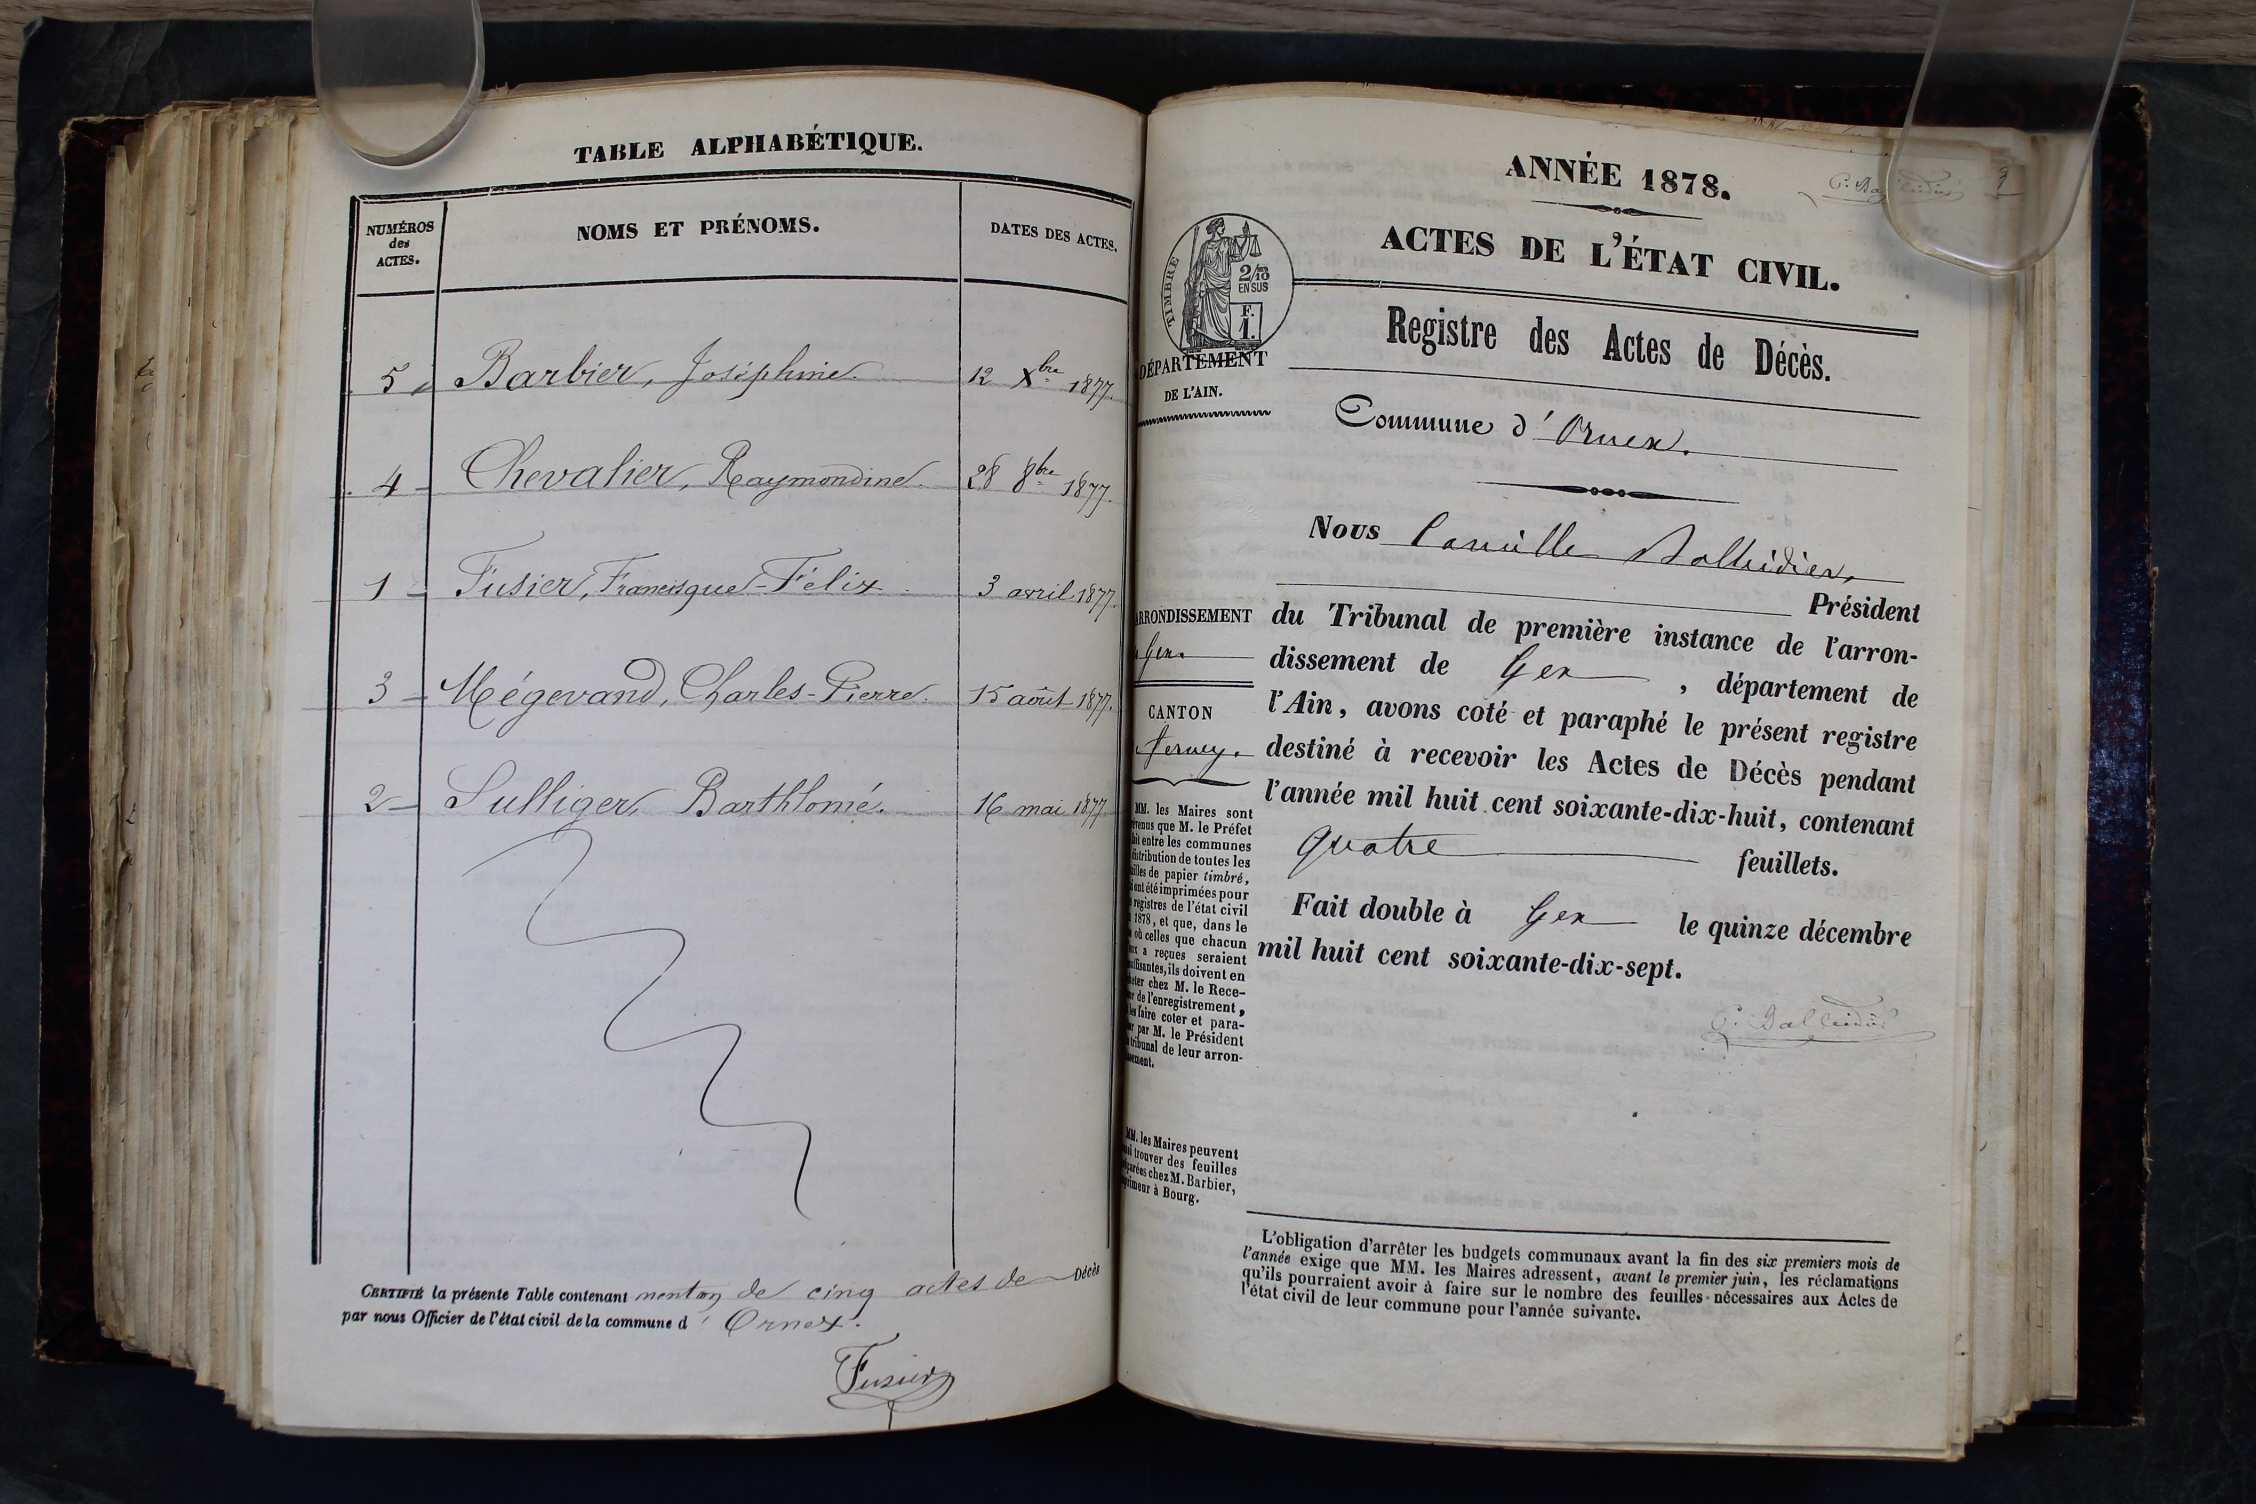 TABLE ALPHABÉTIQUE.
NUMÉROS
des
ACTES.
NOMS ET PRÉNOMS.
DATES DES ACTES.
5 Barbier, Joséphine 12 Xbre 1877.
4 Chevalier, Raymondine 28 8bre 1877.
1 Fusier, Francisque-Félix 3 avril 1877.
3 Mégevand, Charles-Pierre. 15 août 1877.
2 Sulliger, Barthlomé. 16 mai 1877
CERTIFIÉ la présente Table contenant mention de cinq actes de Décès
par nous Officier de l'état civil de la commune d'Ornex.
Fusier
ANNÉE 1878.
ACTES DE L'ÉTAT CIVIL.
TIMBRE
2/10
EN SUS
F.
1.
DÉPARTEMENT
DE L'AIN.
Registre des Actes de Décès.
Commune d'Ornex.
Nous Camille
Président
ARRONDISSEMENT
Gex.
CANTON
Ferney.
du Tribunal de première instance de l'arron-
dissement de Gex, département de
l'Ain, avons coté et paraphé le présent registre
destiné à recevoir les Actes de Décès pendant
l'année mil huit cent soixante-dix-huit, contenant
quatre feuillets.
Fait double à Gex le quinze décembre
mil huit cent soixante-dix-sept.
MM. les Maires sont
que M. le Préfet
entre les communes
distribution de toutes les
de papier timbré,
ont été imprimées pour
registres de l'état civil
1878, et que, dans le
où celles que chacun
a reçues seraient
ils doivent en
chez M. le Rece-
de l'enregistrement,
faire coter et para-
par M. le Président
tribunal de leur arron-
MM. les Maires peuvent
trouver des feuilles
chez M. Barbier,
à Bourg.
L'obligation d'arrêter les budgets communaux avant la fin des six premiers mois de
l'année exige que MM. les Maires adressent, avant le premier juin, les réclamations
qu'ils pourraient avoir à faire sur le nombre des feuilles nécessaires aux Actes de
l'état civil de leur commune pour l'année suivante.